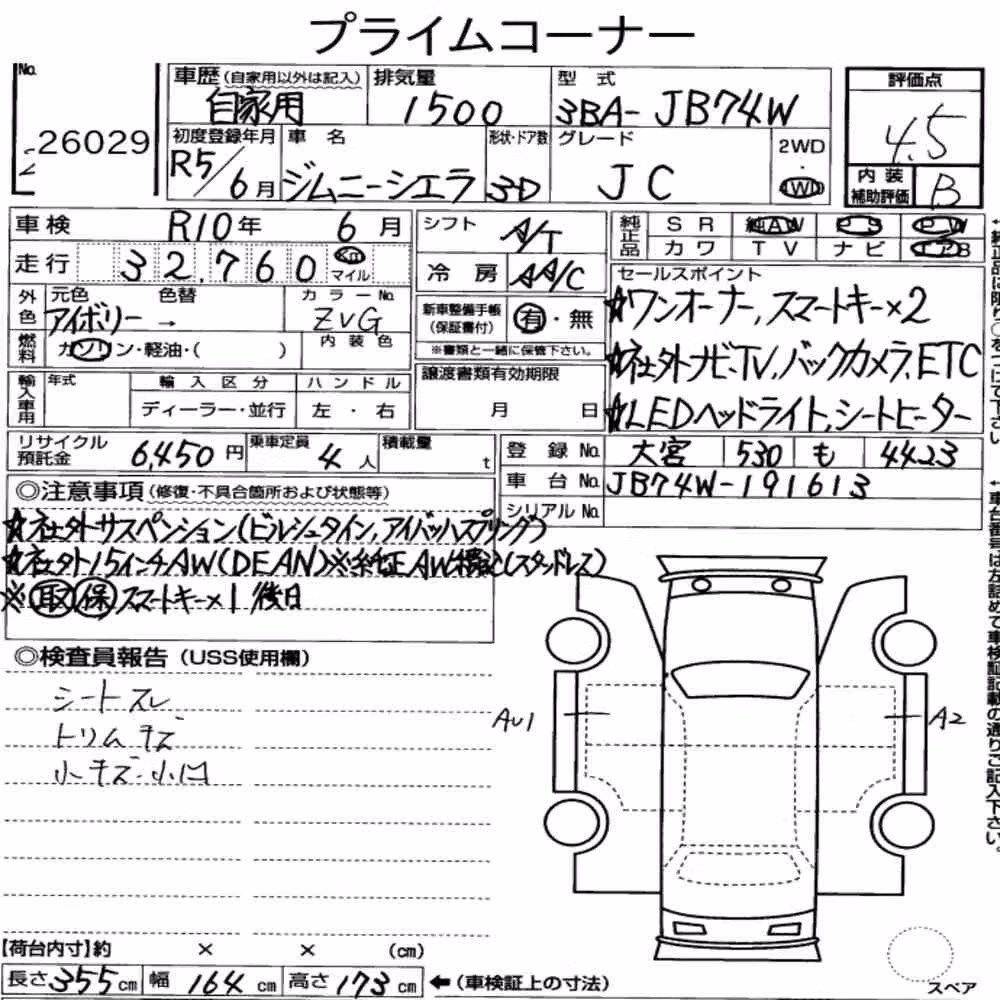 プライムコーナー
No. 26029
車歴 (自家用以外は記入) 自家用
排気量 1500
型 式 3BA-JB74W
評価点 4.5
初度登録年月 R5/6月
車 名 ジムニーシエラ
形状・ドア数 3D
グレード JC
2WD
・
4WD
内 装
補助評価 B
車検 R10年 6月
走行 32,760 Km マイル
シフト A/T
冷 房 AA/C
純正品 SR 純AW PS PW
カワ TV ナビ エアB
外色 元色 アイボリー → 色替
カラーNo. ZVG
燃料 ガソリン・軽油・( )
内 装 色
新車整備手帳
(保証書付) 有・無
※書類と一緒に保管下さい。
セールスポイント
☆ワンオーナー,スマートキー×2
☆社外ナビ,TV,バックカメラ,ETC
☆LEDヘッドライト,シートヒーター
輸入車用 年式 輸 入 区 分 ハ ン ド ル
ディーラー・並行 左 ・ 右
譲渡書類有効期限
月 日
リサイクル
預託金 6,450円
乗車定員 4人
積載量 t
登 録 No. 大宮 530 も 4423
車 台 No. JB74W-191613
シリアル No.
◎注意事項 (修復・不具合箇所および状態等)
☆社外サスペンション(ビルシュタイン,アイバッハスプリング)
☆社外15インチAW(DEAN)※純正AW積込(スタッドレス)
※取保スマートキー×1後日
◎検査員報告 (USS使用欄)
シートスレ
トリムキズ
小キズ・小凹
AU1
A2
【荷台内寸】約 × × (cm)
長さ 355cm 幅 164cm 高さ 173cm ←(車検証上の寸法)
スペア
↑純正品に限り○をつけて下さい
↑車台番号は左詰めで車検証記載の通りご記入下さい。